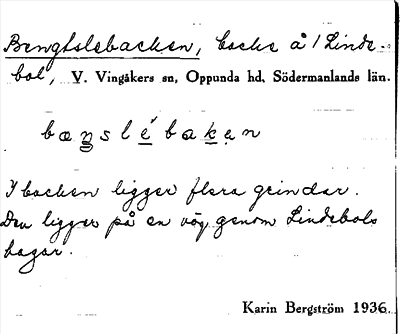 Bengtslebacken, backe å / Linde-
bol, V. Vingåkers sn, Oppunda hd, Södermanlands län.
bæŋslébakan
I backen ligger flera grindar.
Den ligger på en väg genom Lindebols
hagar.
Karin Bergström 1936.